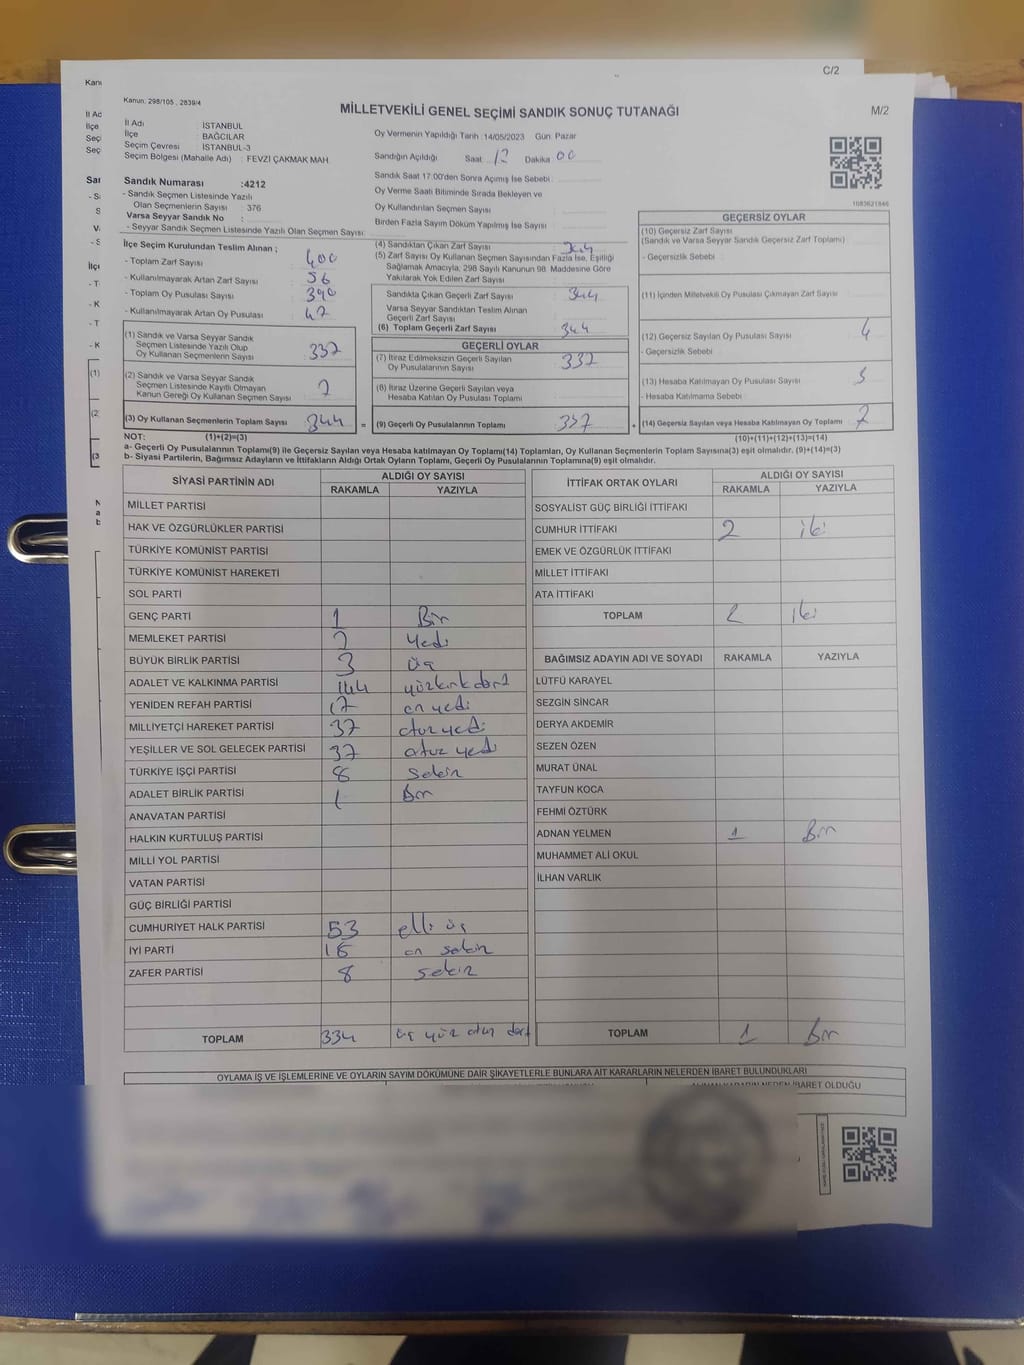 C/2
Kanun: 298/105 , 2839/4
MİLLETVEKİLİ GENEL SEÇİMİ SANDIK SONUÇ TUTANAĞI
M/2
İl Adı : İSTANBUL
İlçe : BAĞCILAR
Seçim Çevresi : İSTANBUL-3
Seçim Bölgesi (Mahalle Adı) : FEVZİ ÇAKMAK MAH.
Oy Vermenin Yapıldığı Tarih :14/05/2023 Gün: Pazar
Sandığın Açıldığı Saat 12 Dakika 00
Sandık Saat 17:00'den Sonra Açılmış İse Sebebi :
Oy Verme Saati Bitiminde Sırada Bekleyen ve
Oy Kullandırılan Seçmen Sayısı
Birden Fazla Sayım Döküm Yapılmış İse Sayısı
1083621846
Sandık Numarası :4212
- Sandık Seçmen Listesinde Yazılı
Olan Seçmenlerin Sayısı : 376
Varsa Seyyar Sandık No :
- Seyyar Sandık Seçmen Listesinde Yazılı Olan Seçmen Sayısı:
İlçe Seçim Kurulundan Teslim Alınan ;
- Toplam Zarf Sayısı : 400
- Kullanılmayarak Artan Zarf Sayısı : 56
- Toplam Oy Pusulası Sayısı : 390
- Kullanılmayarak Artan Oy Pusulası : 47
(1) Sandık ve Varsa Seyyar Sandık
Seçmen Listesinde Yazılı Olup
Oy Kullanan Seçmenlerin Sayısı 337
(2) Sandık ve Varsa Seyyar Sandık
Seçmen Listesinde Kayıtlı Olmayan
Kanun Gereği Oy Kullanan Seçmen Sayısı 7
(3) Oy Kullanan Seçmenlerin Toplam Sayısı 344
(4) Sandıktan Çıkan Zarf Sayısı : 344
(5) Zarf Sayısı Oy Kullanan Seçmen Sayısından Fazla İse, Eşitliği
Sağlamak Amacıyla, 298 Sayılı Kanunun 98. Maddesine Göre
Yakılarak Yok Edilen Zarf Sayısı :
Sandıkta Çıkan Geçerli Zarf Sayısı : 344
Varsa Seyyar Sandıktan Teslim Alınan
Geçerli Zarf Sayısı
(6) Toplam Geçerli Zarf Sayısı : 344
GEÇERLİ OYLAR
(7) İtiraz Edilmeksizin Geçerli Sayılan
Oy Pusulalarının Sayısı 337
(8) İtiraz Üzerine Geçerli Sayılan veya
Hesaba Katılan Oy Pusulası Toplamı
= (9) Geçerli Oy Pusulalarının Toplamı 337
GEÇERSİZ OYLAR
(10) Geçersiz Zarf Sayısı
(Sandık ve Varsa Seyyar Sandık Geçersiz Zarf Toplamı)
- Geçersizlik Sebebi
(11) İçinden Milletvekili Oy Pusulası Çıkmayan Zarf Sayısı
(12) Geçersiz Sayılan Oy Pusulası Sayısı 4
- Geçersizlik Sebebi
(13) Hesaba Katılmayan Oy Pusulası Sayısı 3
- Hesaba Katılmama Sebebi
+ (14) Geçersiz Sayılan veya Hesaba Katılmayan Oy Toplamı 7
NOT: (1)+(2)=(3) (10)+(11)+(12)+(13)=(14)
a- Geçerli Oy Pusulalarının Toplamı(9) ile Geçersiz Sayılan veya Hesaba katılmayan Oy Toplamı(14) Toplamları, Oy Kullanan Seçmenlerin Toplam Sayısına(3) eşit olmalıdır. (9)+(14)=(3)
b- Siyasi Partilerin, Bağımsız Adayların ve İttifakların Aldığı Ortak Oyların Toplamı, Geçerli Oy Pusulalarının Toplamına(9) eşit olmalıdır.
SİYASİ PARTİNİN ADI ALDIĞI OY SAYISI
RAKAMLA YAZIYLA
MİLLET PARTİSİ
HAK VE ÖZGÜRLÜKLER PARTİSİ
TÜRKİYE KOMÜNİST PARTİSİ
TÜRKİYE KOMÜNİST HAREKETİ
SOL PARTİ
GENÇ PARTİ 1 Bir
MEMLEKET PARTİSİ 7 Yedi
BÜYÜK BİRLİK PARTİSİ 3 üç
ADALET VE KALKINMA PARTİSİ 144 yüzkırkdört
YENİDEN REFAH PARTİSİ 17 on yedi
MİLLİYETÇİ HAREKET PARTİSİ 37 otuz yedi
YEŞİLLER VE SOL GELECEK PARTİSİ 37 otuz yedi
TÜRKİYE İŞÇİ PARTİSİ 8 sekiz
ADALET BİRLİK PARTİSİ 1 Bir
ANAVATAN PARTİSİ
HALKIN KURTULUŞ PARTİSİ
MİLLİ YOL PARTİSİ
VATAN PARTİSİ
GÜÇ BİRLİĞİ PARTİSİ
CUMHURİYET HALK PARTİSİ 53 elli üç
İYİ PARTİ 18 on sekiz
ZAFER PARTİSİ 8 sekiz
TOPLAM 334 üç yüz otuz dört
İTTİFAK ORTAK OYLARI ALDIĞI OY SAYISI
RAKAMLA YAZIYLA
SOSYALİST GÜÇ BİRLİĞİ İTTİFAKI
CUMHUR İTTİFAKI 2 iki
EMEK VE ÖZGÜRLÜK İTTİFAKI
MİLLET İTTİFAKI
ATA İTTİFAKI
TOPLAM 2 iki
BAĞIMSIZ ADAYIN ADI VE SOYADI RAKAMLA YAZIYLA
LÜTFÜ KARAYEL
SEZGİN SİNCAR
DERYA AKDEMİR
SEZEN ÖZEN
MURAT ÜNAL
TAYFUN KOCA
FEHMİ ÖZTÜRK
ADNAN YELMEN 1 Bir
MUHAMMET ALİ OKUL
İLHAN VARLIK
TOPLAM 1 Bir
OYLAMA İŞ VE İŞLEMLERİNE VE OYLARIN SAYIM DÖKÜMÜNE DAİR ŞİKAYETLERLE BUNLARA AİT KARARLARIN NELERDEN İBARET BULUNDUKLARI
İBARET OLDUĞU